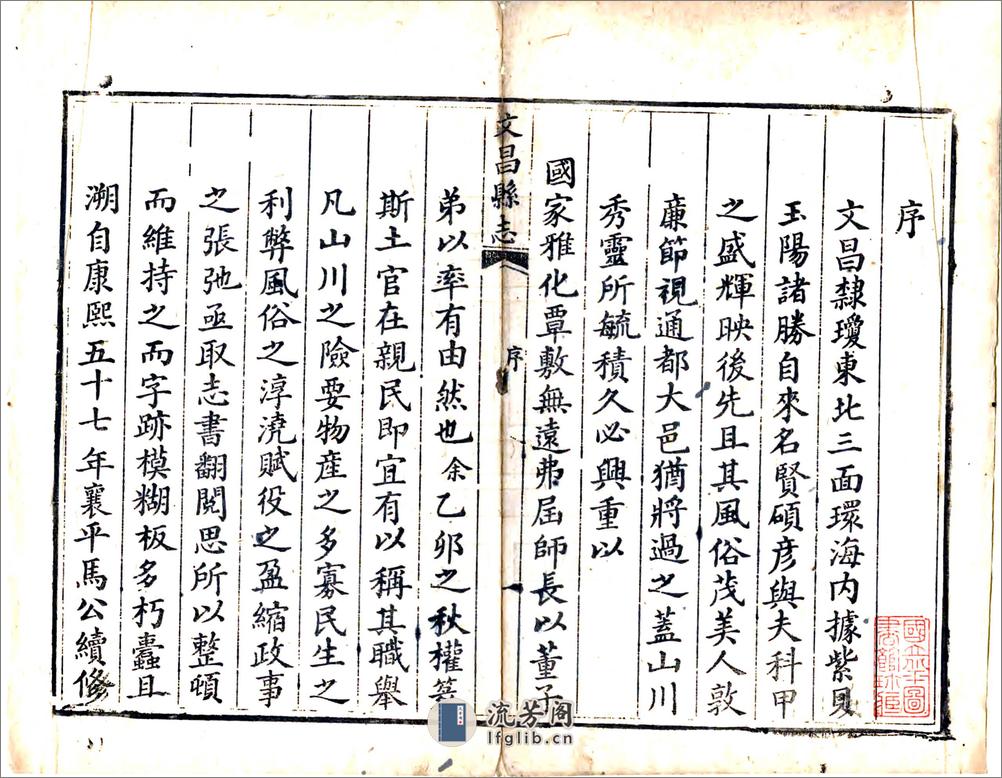 序
文昌隸瓊東北三面環海内據紫貝
玉陽諸勝自來名賢碩彦與夫科甲
之盛輝映後先且其風俗茂美人敦
廉節視通都大邑猶將過之蓋山川
秀靈所毓積久必興重以
國家雅化覃敷無遠弗屆師長以董子
文昌縣志
序
一
弟以率有由然也余乙卯之秋權篆
斯土官在親民即宜有以稱其職舉
凡山川之險要物產之多寡民生之
利弊風俗之淳澆賦役之盈縮政事
之張弛亟取志書翻閱思所以整頓
而維持之而字跡模糊板多朽蠹且
溯自康熙五十七年襄平馬公續修
流芳阁
lfglib.cn